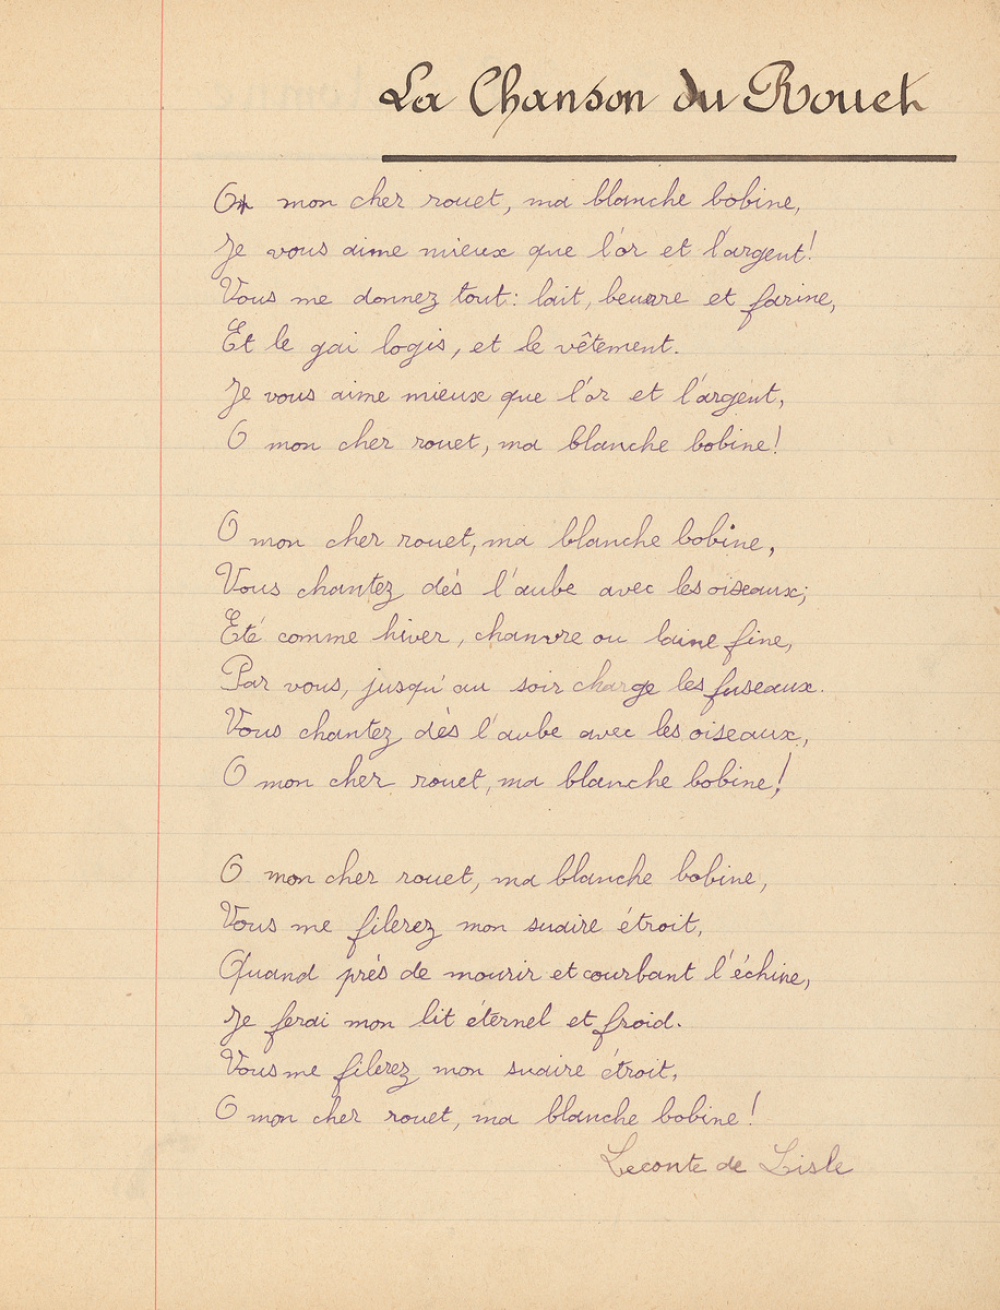 La Chanson du Rouet
O* mon cher rouet, ma blanche bobine,
Je vous aime mieux que l'or et l'argent!
Vous me donnez tout: lait, beurre et farine,
Et le gai logis, et le vêtement.
Je vous aime mieux que l'or et l'argent,
O mon cher rouet, ma blanche bobine!
O mon cher rouet, ma blanche bobine,
Vous chantez dés l'aube avec les oiseaux;
Eté comme hiver, chanvre ou laine fine,
Par vous, jusqu'au soir charge les fuseaux.
Vous chantez dès l'aube avec les oiseaux,
O mon cher rouet, ma blanche bobine!
O mon cher rouet, ma blanche bobine,
Vous me filerez mon suaire étroit,
Quand prés de mourir et courbant l'échine,
Je ferai mon lit éternel et froid.
Vous me filerez mon suaire étroit,
O mon cher rouet, ma blanche bobine!
Leconte de Lisle